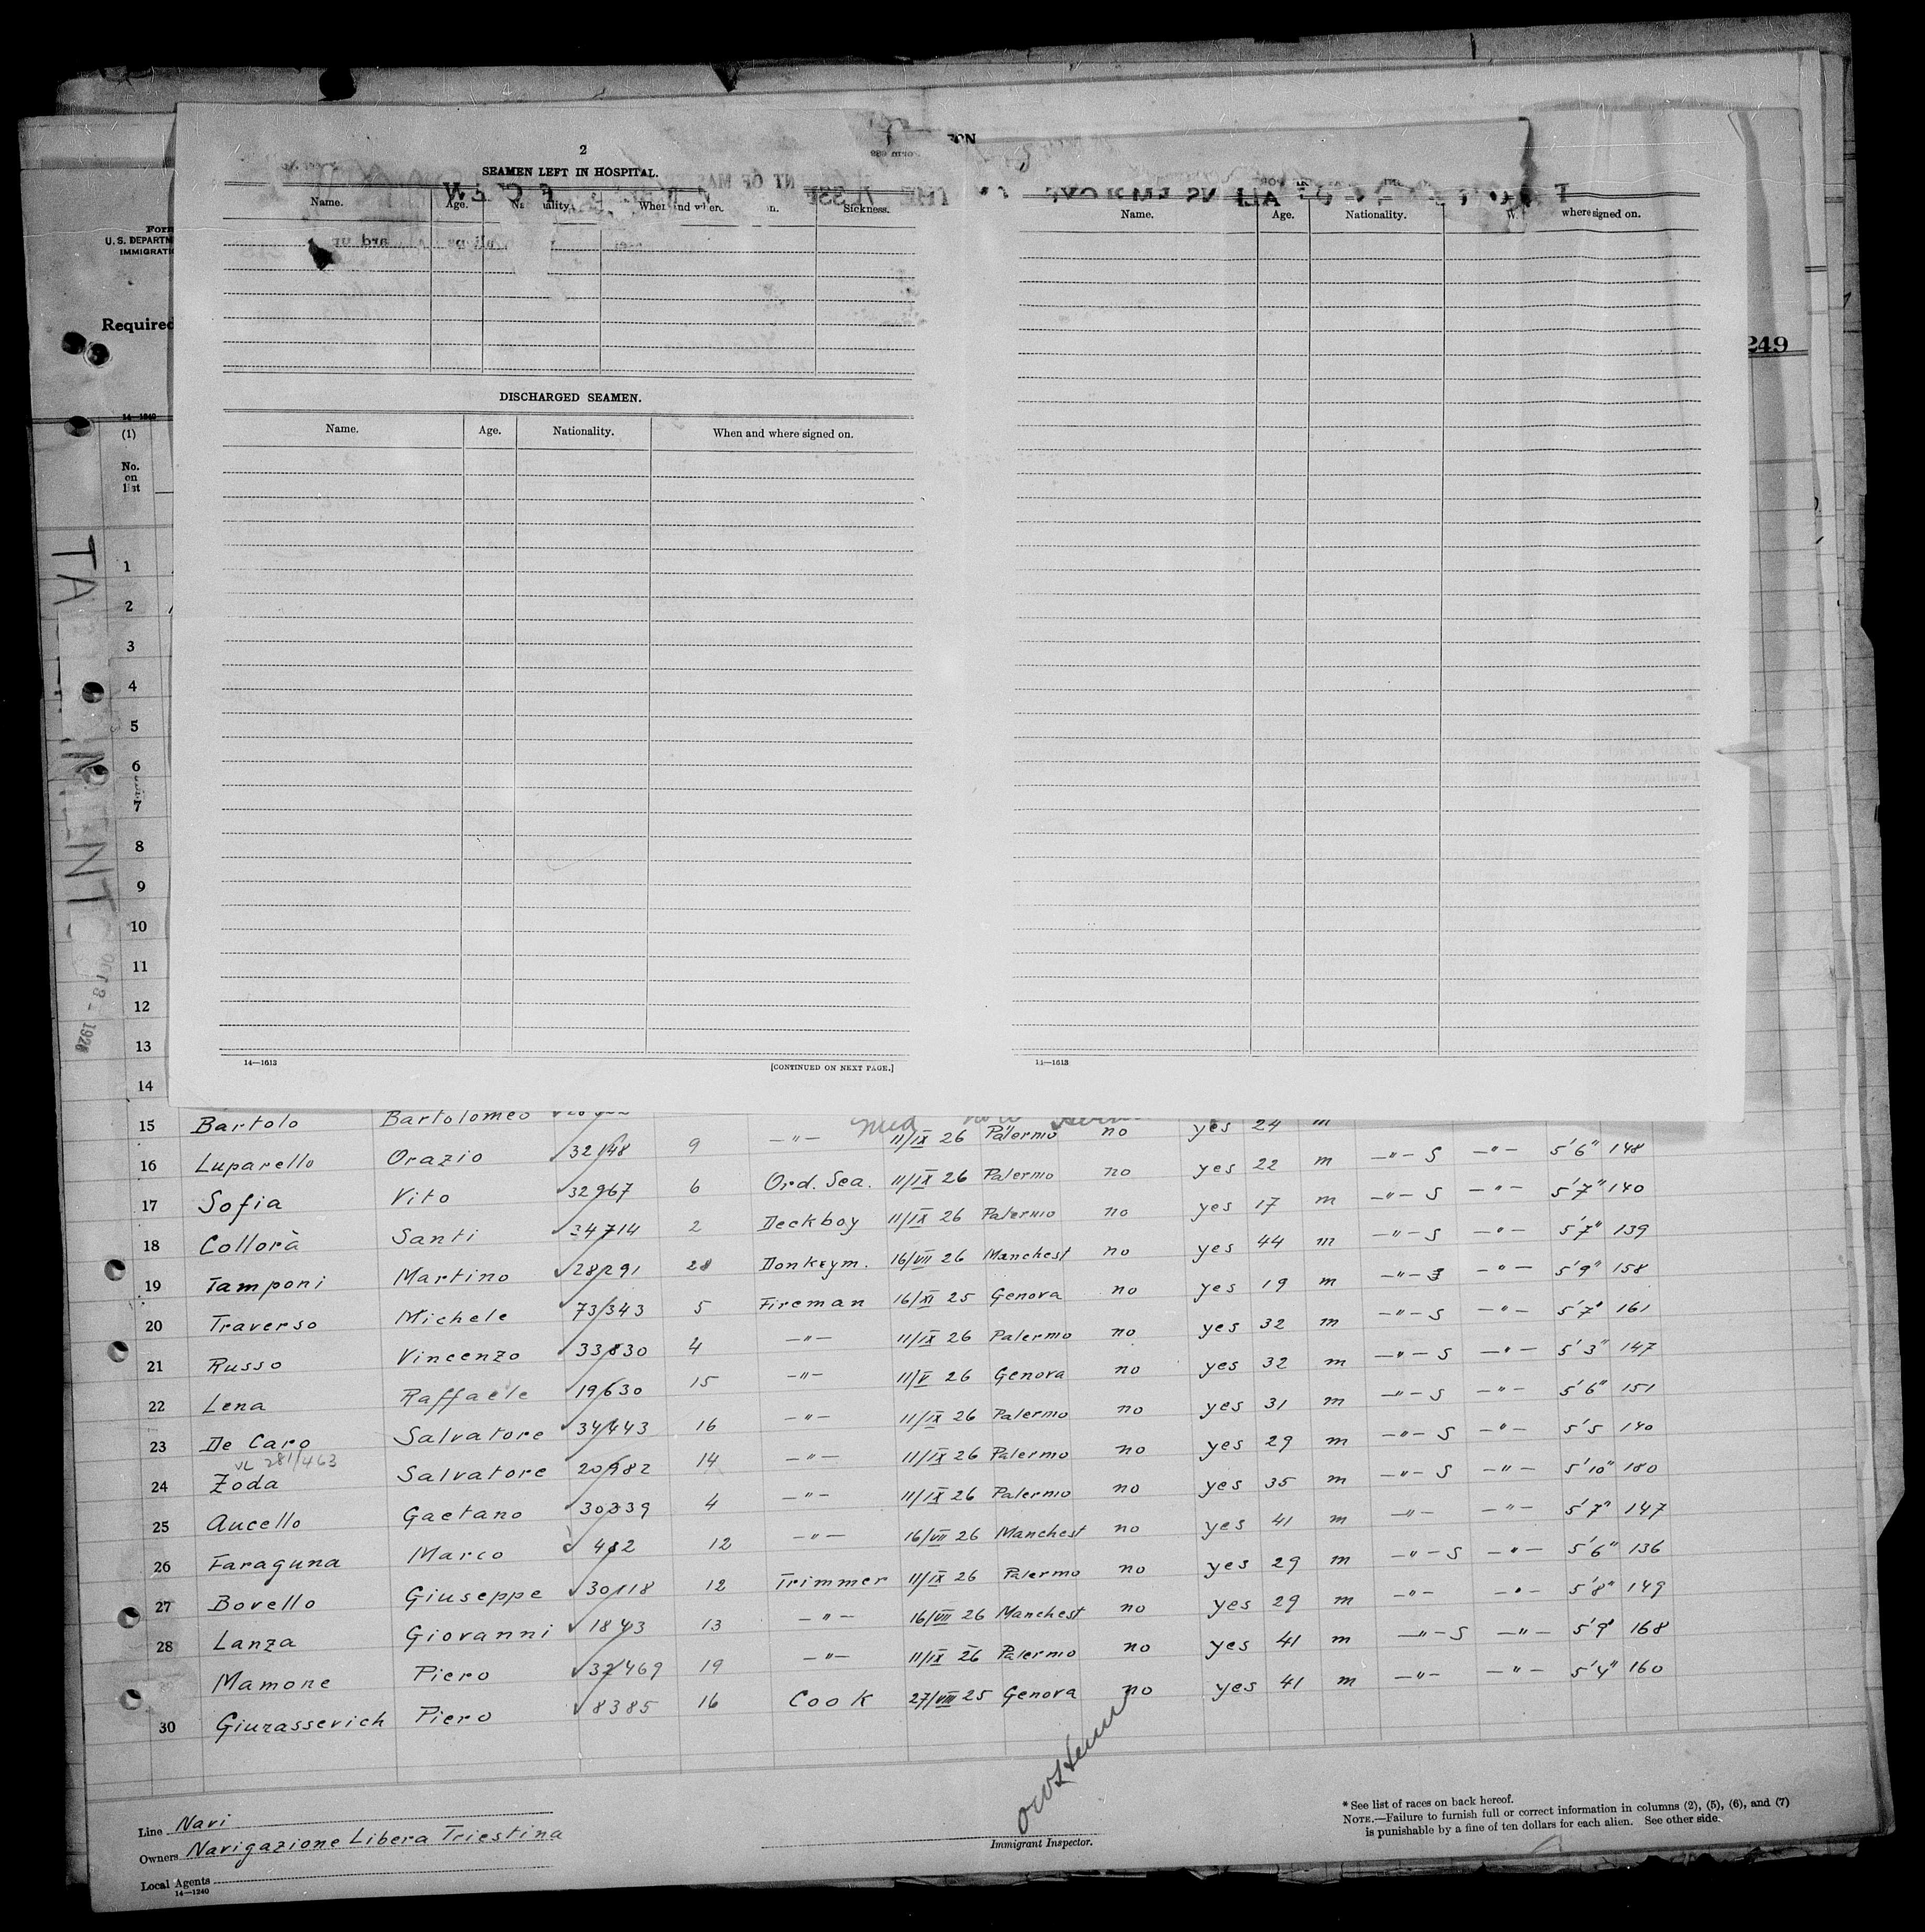 2
SEAMEN LEFT IN HOSPITAL.
Name. Age. Sickness.
DISCHARGED SEAMEN.
Name. Age. Nationality. When and where signed on.
14—1613 [CONTINUED ON NEXT PAGE.]
Name. Age. Nationality. where signed on.
14—1613
Form
U. S. DEPARTM
IMMIGRATI
Required
249
14—1240
(1)
No.
on
list
1
2
3
4
5
6
7
8
9
10
11
12
13
14
OCT 8 - 1926
15 Bartolo Bartolomeo
11/IX 26 Palermo no yes 24 m
16 Luparello Orazio 32148 9 —"— Ord. Sea. 11/IX 26 Palermo no yes 22 m —"— S —"— 5'6" 148
17 Sofia Vito 32967 6 Deckboy 11/IX 26 Palermo no yes 17 m —"— S —"— 5'7" 140
18 Collorà Santi 34714 2 Donkeym. 16/VII 26 Manchest no yes 44 m —"— S —"— 5'7" 139
19 Tamponi Martino 28291 28 Fireman 16/XI 25 Genova no yes 19 m —"— S —"— 5'9" 158
20 Traverso Michele 73343 5 —"— 11/IX 26 Palermo no yes 32 m —"— S —"— 5'7" 161
21 Russo Vincenzo 33830 4 —"— 11/V 26 Genova no yes 32 m —"— S —"— 5'3" 147
22 Lena Raffaele 19630 15 —"— 11/IX 26 Palermo no yes 31 m —"— S —"— 5'6" 151
23 De Caro Salvatore 34443 16 —"— 11/IX 26 Palermo no yes 29 m —"— S —"— 5'5 140
VL 281/463
24 Zoda Salvatore 20982 14 —"— 11/IX 26 Palermo no yes 35 m —"— S —"— 5'10" 180
25 Aucello Gaetano 30339 4 —"— 16/VII 26 Manchest no yes 41 m —"— —"— 5'7" 147
26 Faraguna Marco 482 12 Trimmer 11/IX 26 Palermo no yes 29 m —"— S —"— 5'6" 136
27 Bovello Giuseppe 30118 12 —"— 16/VII 26 Manchest no yes 29 m —"— —"— 5'8" 149
28 Lanza Giovanni 1843 13 —"— 11/IX 26 Palermo no yes 41 m —"— S —"— 5'9" 168
Mamone Piero 32469 19 Cook 27/VIII 25 Genova no yes 41 m —"— —"— 5'4" 160
30 Giurassevich Piero 8385 16
Line Navi
Owners Navigazione Libera Triestina
Local Agents
14—1240
Immigrant Inspector.
* See list of races on back hereof.
NOTE.—Failure to furnish full or correct information in columns (2), (5), (6), and (7)
is punishable by a fine of ten dollars for each alien. See other side.